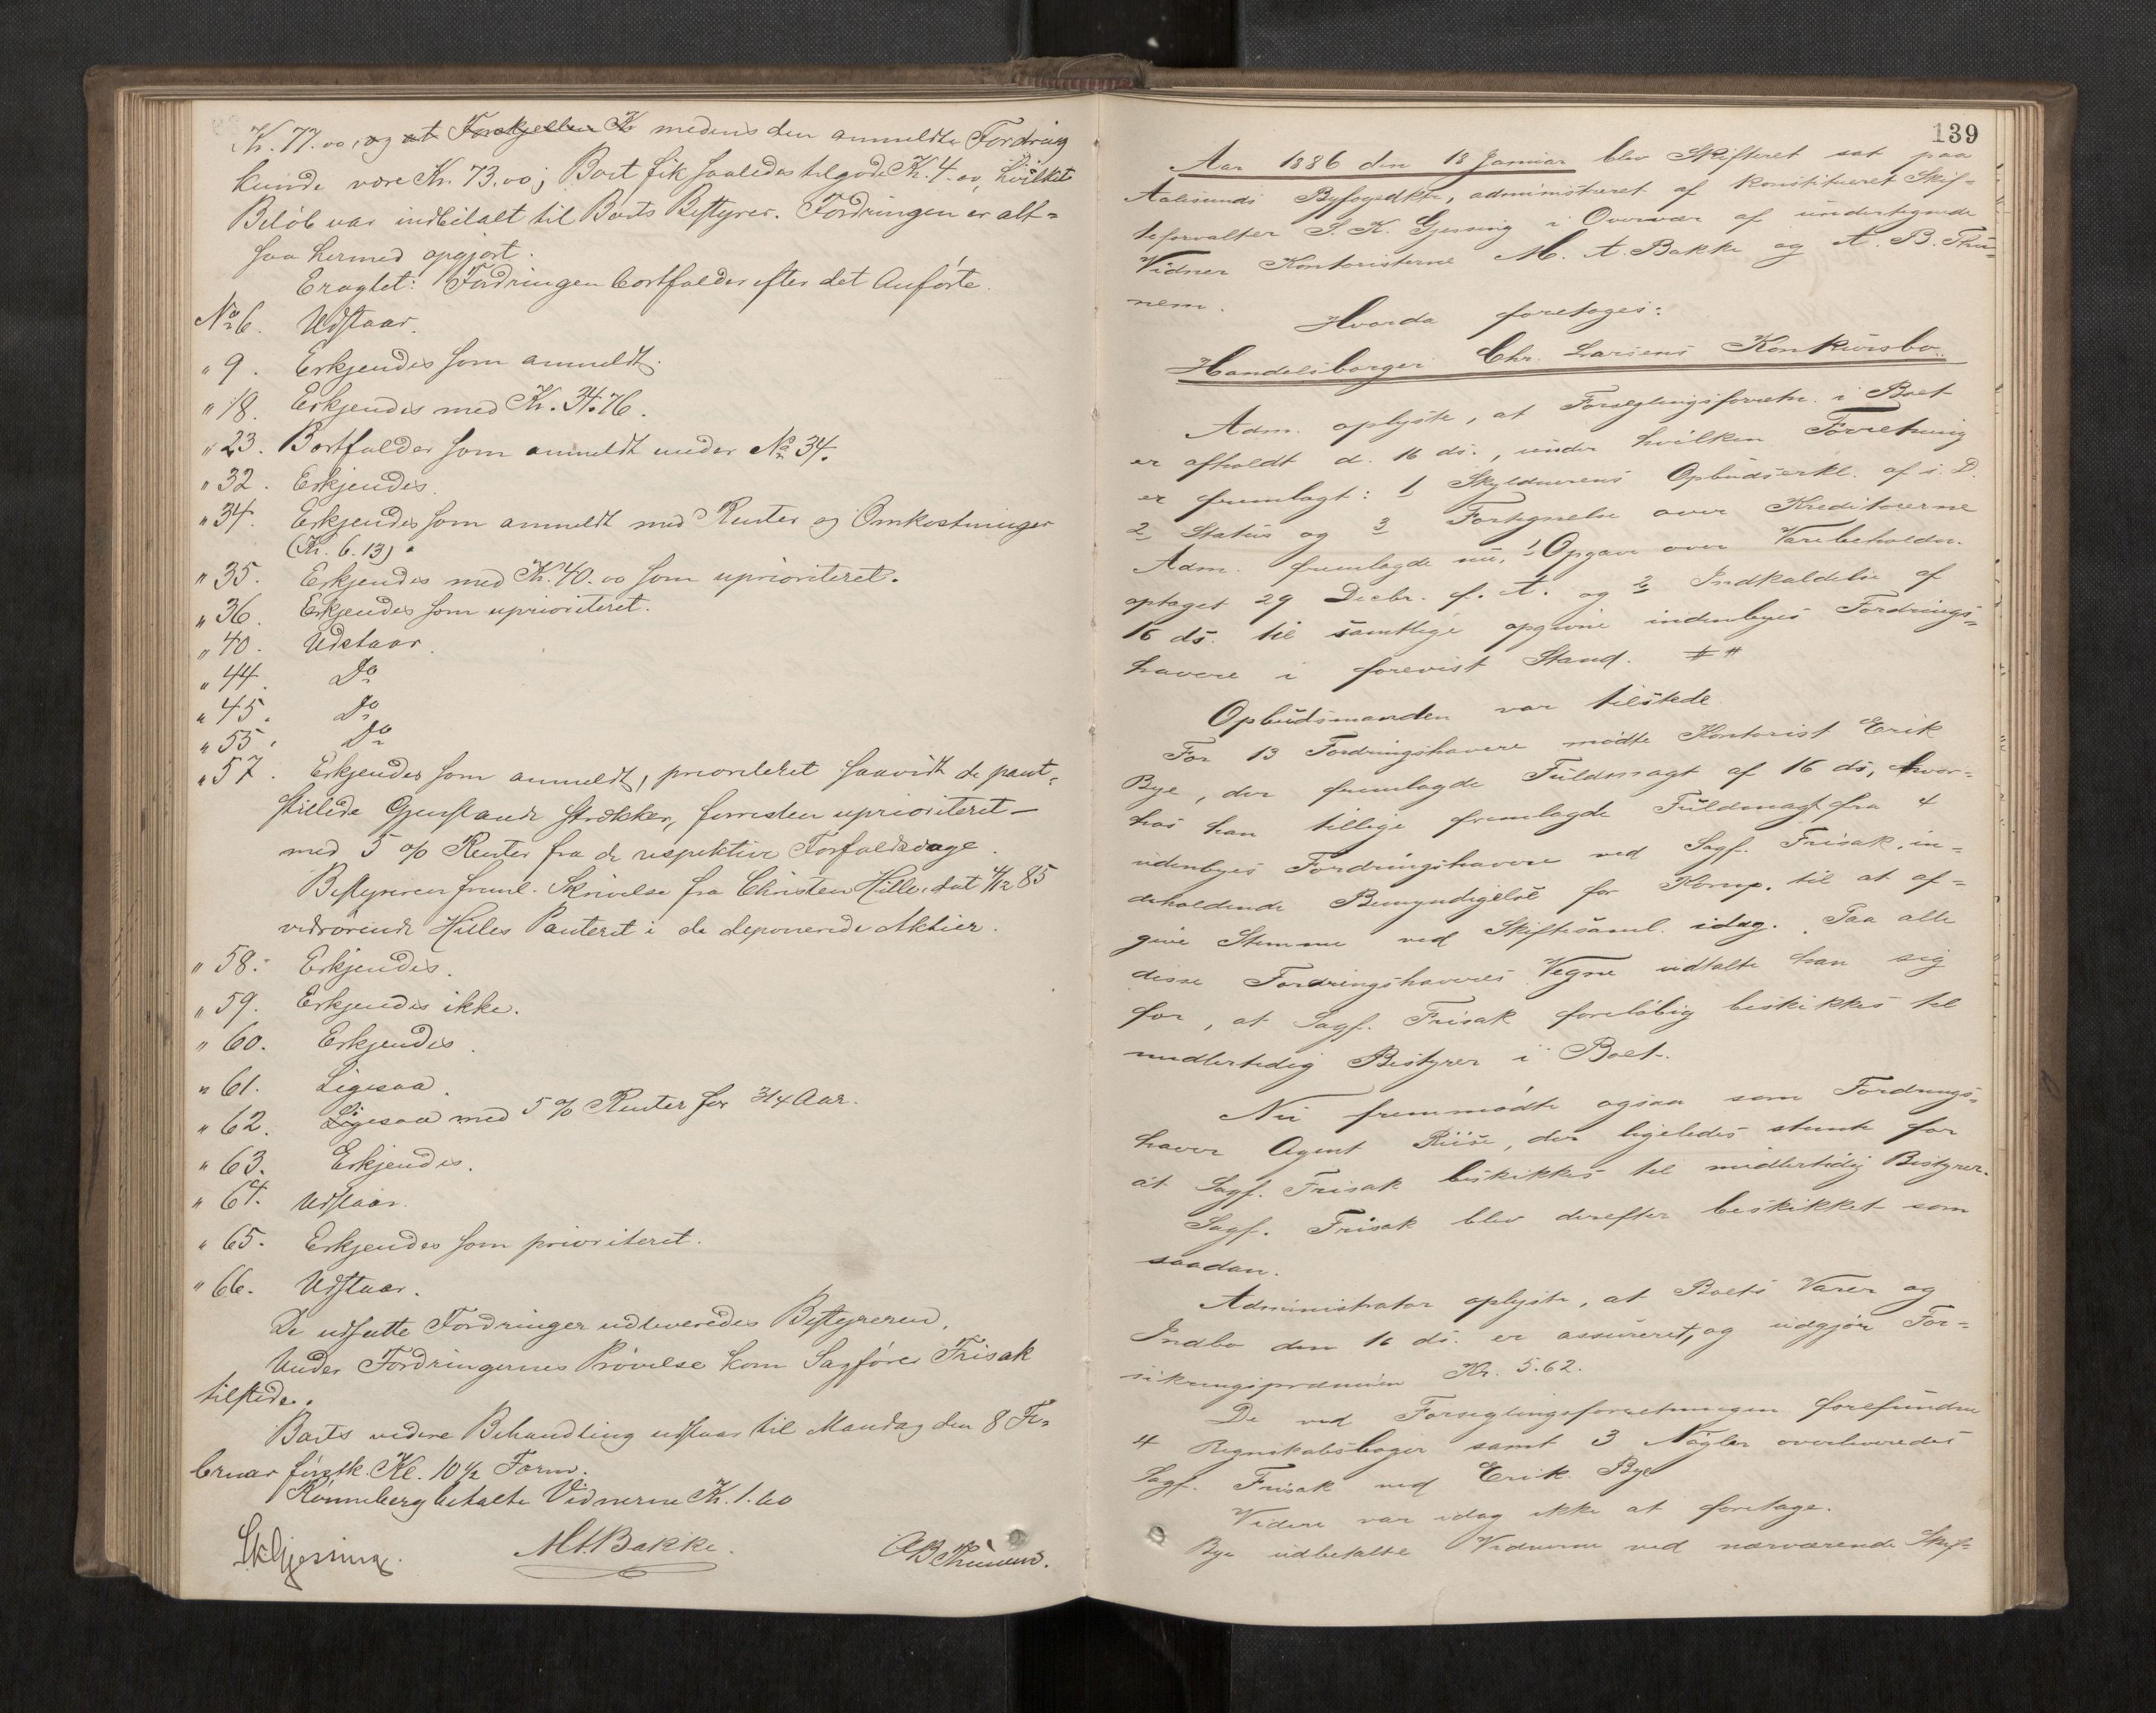 Kr. 77.00, og at Forskjellen Kr medens den anmeldte Fordring
kunde være Kr. 73.00; Boet fik saaledes tilgode Kr. 4.00, hvilket
Beløb var indbetalt til Boets Bestyrer. Fordringen er alt=
saa hermed opgjort.
Eragtet: Fordringen bortfalder efter det Anførte.
No 6. Udstaar.
" 9. Erkjendes som anmeldt.
" 18. Erkjendes med Kr. 34.76.
" 23. Bortfalder som anmeldt under No 34.
" 32. Erkjendes.
" 34. Erkjendes som anmeldt med Renter og Omkostninger
(Kr. 6.13).
" 35. Erkjendes med Kr. 40.00 som uprioriteret.
" 36. Erkjendes som uprioriteret.
" 40. Udstaar.
" 44. Do
" 45. Do
" 55. Do
" 57. Erkjendes som anmeldt, prioriteret saavidt de pant=
stillede Gjenstande strækker, forresten uprioriteret —
med 5 % Renter fra de respektive Forfaldsdage.
Bestyreren freml. Skrivelse fra Christen Hille, dat 4/12 85
vedrørende Hilles Panteret i de deponerede Aktier.
" 58. Erkjendes.
" 59. Erkjendes ikke.
" 60. Erkjendes.
" 61. Ligesaa.
" 62. Ligesaa med 5 % Renter for 3/4 Aar.
" 63. Erkjendes.
" 64. Udstaar.
" 65. Erkjendes som prioriteret.
" 66. Udstaar.
De udsatte Fordringer udleveredes Bestyreren.
Under Fordringernes Prøvelse kom Sagfører Frisak
tilstede.
Boets videre Behandling udstaar til Mandag den 8 Fe=
bruar førstk. Kl. 10 1/2 Form.
Rønneberg betalte Vidnerne Kr. 1.60
SKGjessing. M.A.Bakke. ABThünem.
139
Aar 1886 den 18 Januar blev Skifteret sat paa
Aalesunds Byfogedktr, administreret af konstitueret Skif=
teforvalter S. K. Gjessing i Overvær af undertegnede
Vidner Kontoristerne M. A. Bakke og A. B. Thü=
nem.
Hvorda foretoges:
Handelsborger Chr. Larsens Konkursbo.
Adm. oplyste, at Forseglingsforretn. i Boet
er afholdt d. 16 ds., under hvilken Forretning
er fremlagt: 1 Skyldnerens Opbudserkl. af s. D.
2 Status og 3 Fortegnelse over Kreditorerne
Adm. fremlagde nu, 1 Opgave over Varebeholdn.
optaget 29 Decbr. f. A. og 2 Indkaldelse af
16 ds. til samtlige opgivne indenbyes Fordrings=
havere i forevist Stand. # "
Opbudsmanden var tilstede
For 13 Fordringshavere mødte Kontorist Erik
Bye, der fremlagde Fuldmagt af 16 ds, hvor=
hos han tillige fremlagde Fuldmagt fra 4
udenbyes Fordringshavere ved Sagf. Frisak, in=
deholdende Bemyndigelse for Komp. til at af=
give Stemme ved Skiftesaml. idag. Paa alle
disse Fordringshaveres Vegne udtalte han sig
for, at Sagf. Frisak foreløbig beskikkes til
midlertidig Bestyrer i Boet.
Nu fremmødte ogsaa som Fordrings=
haver Agent Riise, der ligeledes stemte for
at Sagf. Frisak beskikkes til midlertidig Bestyrer.
Sagf. Frisak blev derefter beskikket som
saadan.
Administrator oplyste, at Boets Varer og
Indbo den 16 ds. er assureret, og udgjør For=
sikringspræmien Kr. 5.62.
De ved Forseglingsforretningen forefundne
4 Regnskabsbøger samt 3 Nøgler overleveredes
Sagf. Frisak ved Erik Bye
Videre var idag ikke at foretage.
Bye udbetalte Vidnerne ved nærværende Skif=